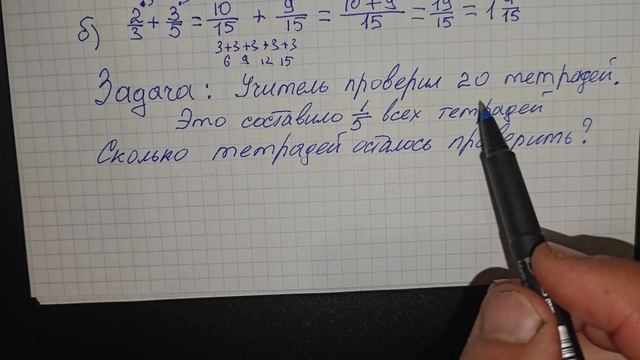 б) 2/3 + 3/5 = 10/15 + 9/15 = 10+9/15 = 19/15 = 1 4/15
3+3+3+3+3
6 9 12 15
Задача: Учитель проверил 20 тетрадей.
Это составило 1/5 всех тетрадей
Сколько тетрадей осталось проверить?